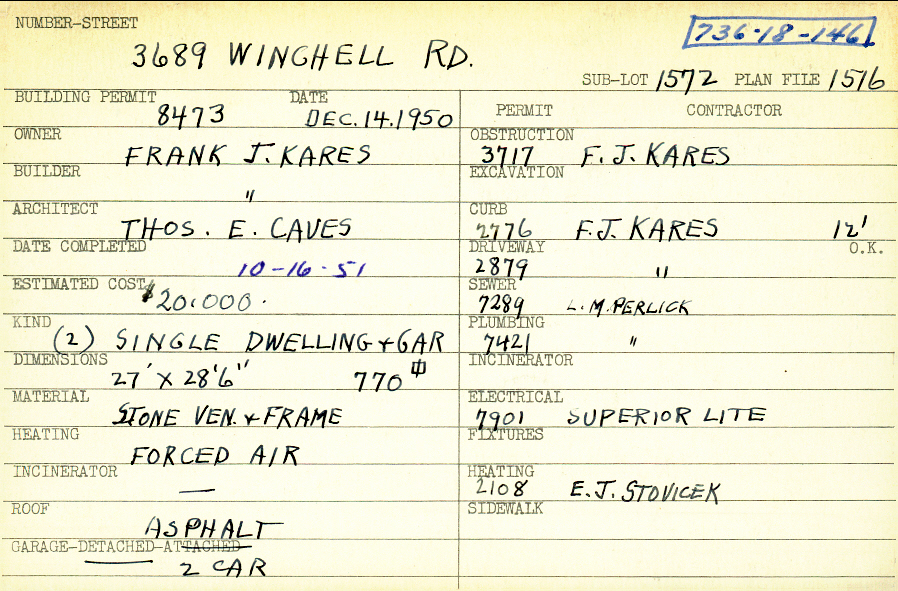 NUMBER-STREET
736-18-146
3689 WINGHELL RD.
SUB-LOT 1572 PLAN FILE 1516
BUILDING PERMIT DATE
8473 DEC. 14. 1950
OWNER
FRANK J. KARES
BUILDER
"
ARCHITECT
THOS. E. CAVES
DATE COMPLETED
10-16-51
ESTIMATED COST
$20.000.
KIND
(2) SINGLE DWELLING + GAR
DIMENSIONS
27' X 28'6" 770
MATERIAL
STONE VEN. + FRAME
HEATING
FORCED AIR
INCINERATOR
—
ROOF
ASPHALT
GARAGE-DETACHED-ATTACHED
2 CAR
PERMIT CONTRACTOR
OBSTRUCTION
3717 F. J. KARES
EXCAVATION
CURB
2776 F.J. KARES 12'
DRIVEWAY O.K.
2879 "
SEWER
7289 L.M. PERLICK
PLUMBING
7421 "
INCINERATOR
ELECTRICAL
7901 SUPERIOR LITE
FIXTURES
HEATING
2108 E.J. STOVICEK
SIDEWALK